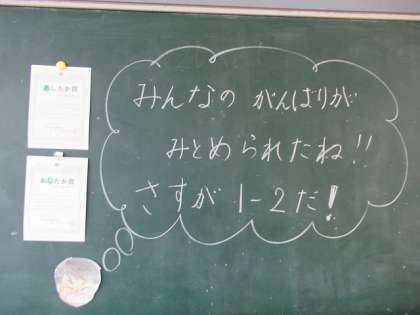 みんなの がんばりが
みとめられたね!!
さすが 1-2だ!